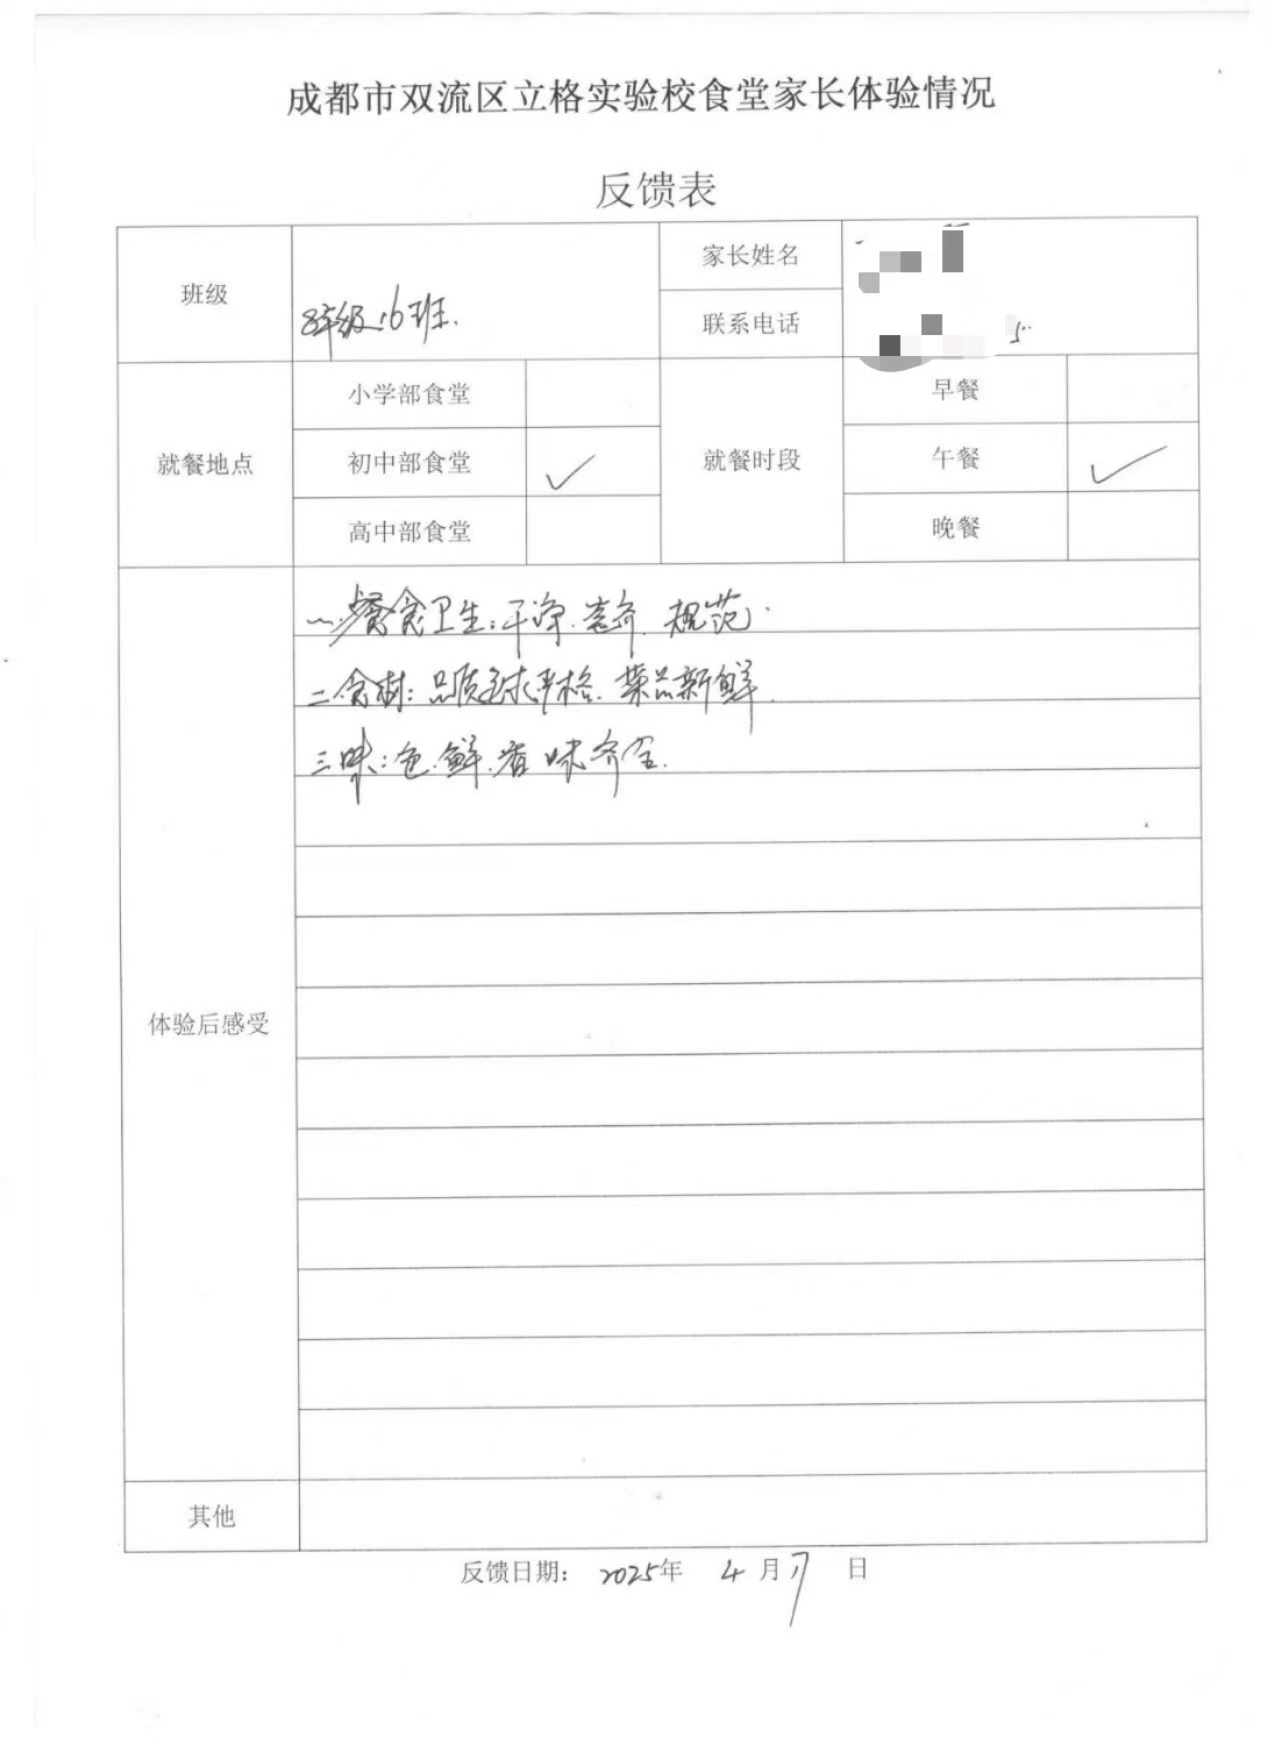 成都市双流区立格实验校食堂家长体验情况
反馈表
班级
8年级.6班.
家长姓名
联系电话
就餐地点
小学部食堂
初中部食堂 ✓
高中部食堂
就餐时段
早餐
午餐 ✓
晚餐
体验后感受
一.餐食卫生:干净.整齐.规范.
二.食材:品质追求严格.菜品新鲜.
三味:色.鲜.香味齐全.
其他
反馈日期: 2025年 4月17日